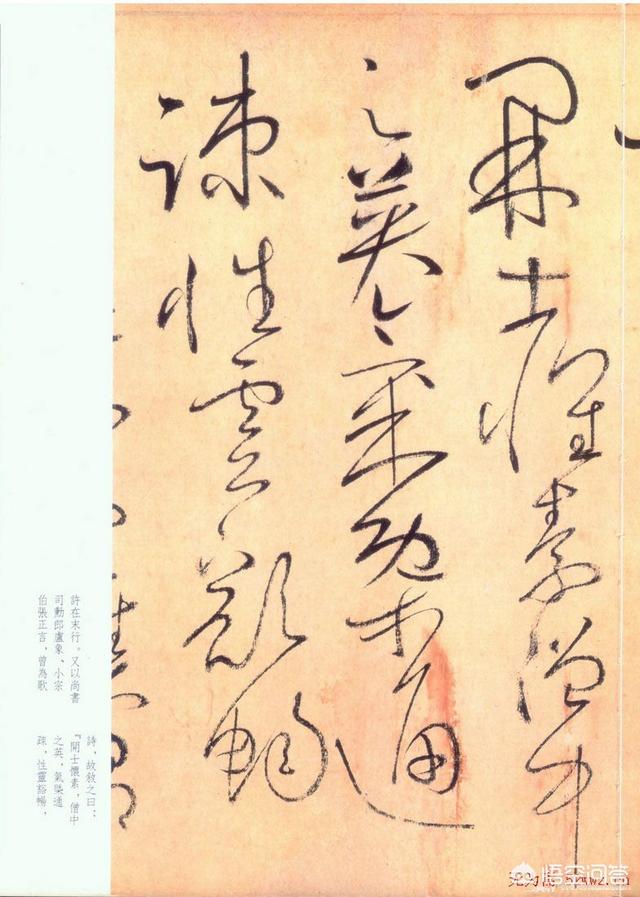 開士懷素僧中
之英氣槩通
疎性靈豁暢
許在末行。又以尚書
司勳郎盧象、小宗
伯張正言，曾為歌
詩，故敘之曰：
『開士懷素，僧中
之英，氣槩通
疎，性靈豁暢，
悟空问答